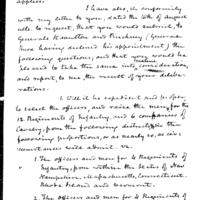 applies.
I have also, in conformity
with my letter to you, dated the 4th of August
ulto, to request, that you would submit, to
Generals Hamilton and Pinckney (General
Knox having declined his appointment) the
following questions, and that you would be
pleased to take the same into consideration,
and report, to me, the result of your deliber
ations.
1. Will it be expedient and proper
to select the officers, and raise the men for the
12 Regiments of Infantry, and 6 companies of
Cavalry, from the following districts, in the
following proportions, or as nearly so, as cir
cumstances will admit. viz.
1. The officers and men for 4 Regiments of
Infantry, from within the States of New
Hampshire, Massachusetts, Connecticut,
Rhode Island and Vermont.
2. The officers and men for 4 Regiments of